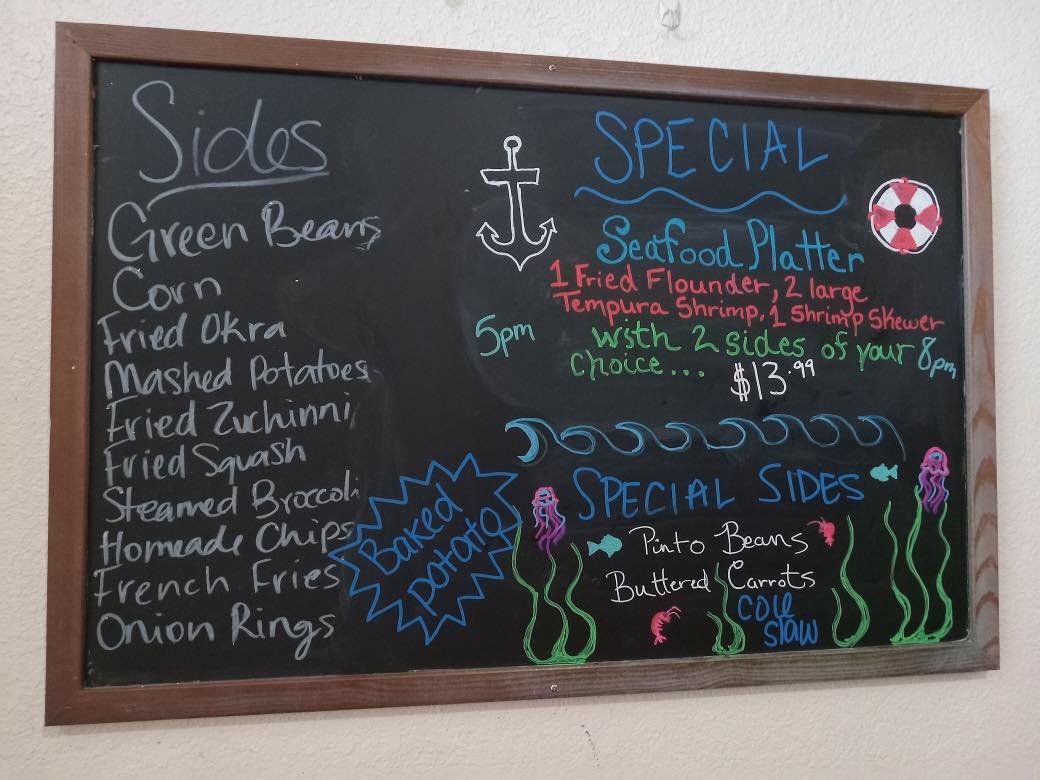 Sides
Green Beans
Corn
Fried Okra
Mashed Potatoes
Fried Zuchinni
Fried Squash
Steamed Broccoli
Homeade Chips
French Fries
Onion Rings
Baked
potatoe
SPECIAL
Seafood Platter
1 Fried Flounder, 2 large
Tempura Shrimp, 1 Shrimp Skewer
5pm
with 2 sides of your
8pm
choice...
$13.99
SPECIAL SIDES
Pinto Beans
Buttered Carrots
cole
slaw